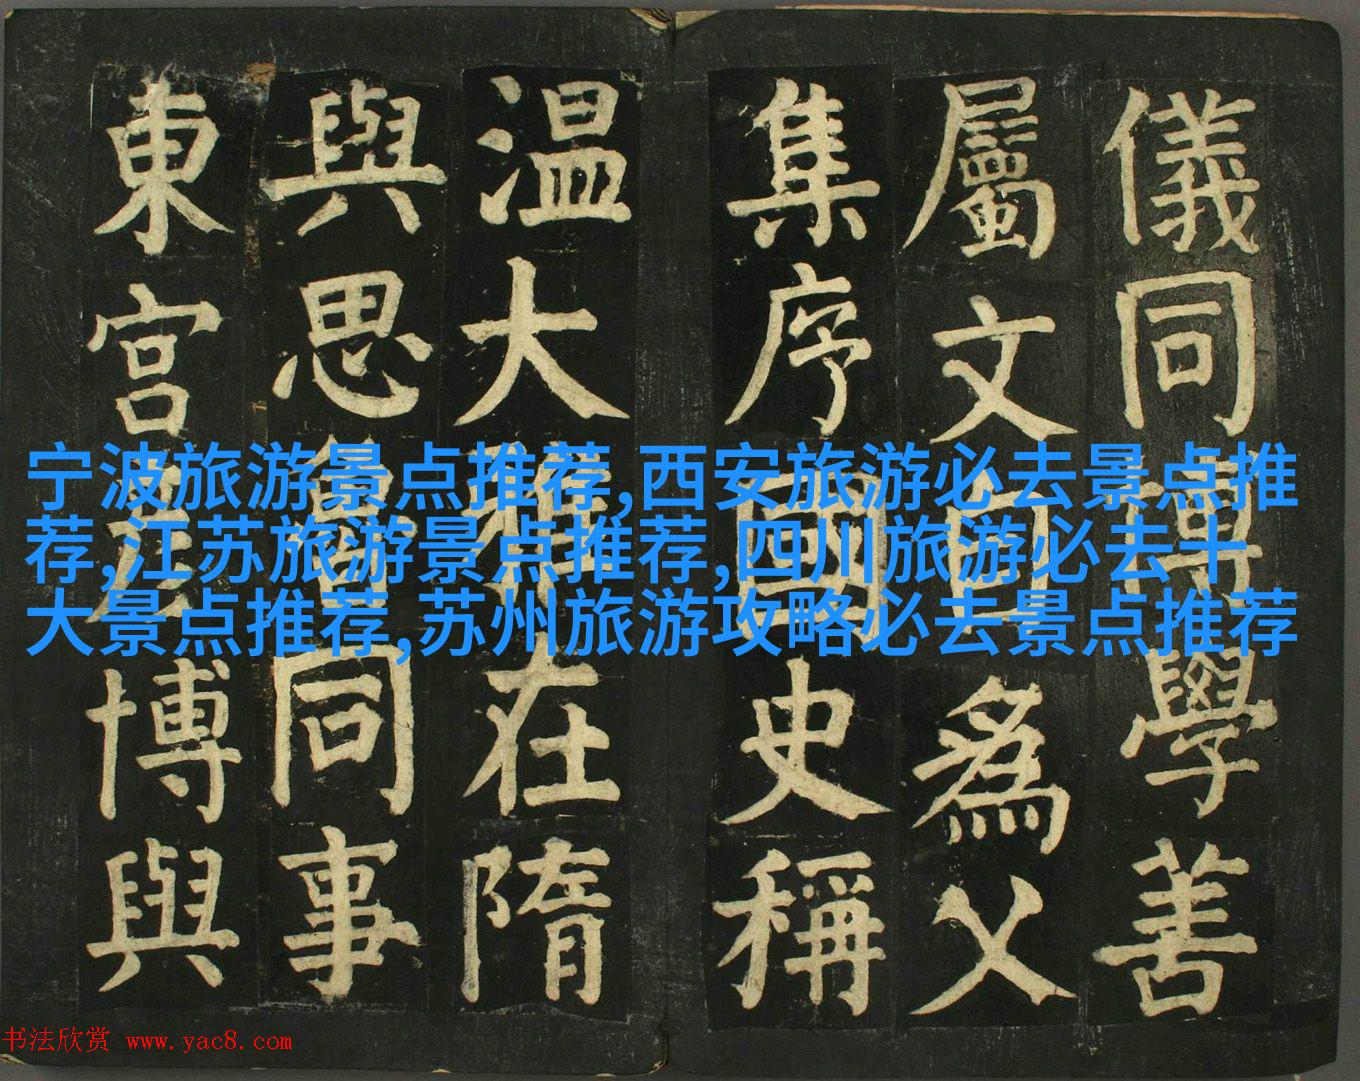 儀同博學善
屬文自為父
集序國史稱
温大雅在隋
與思魯同事
東宫博與
宁波旅游景点推荐,西安旅游必去景点推
荐,江苏旅游景点推荐,四川旅游必去十
大景点推荐,苏州旅游攻略必去景点推荐
书法欣赏 www.yac8.com